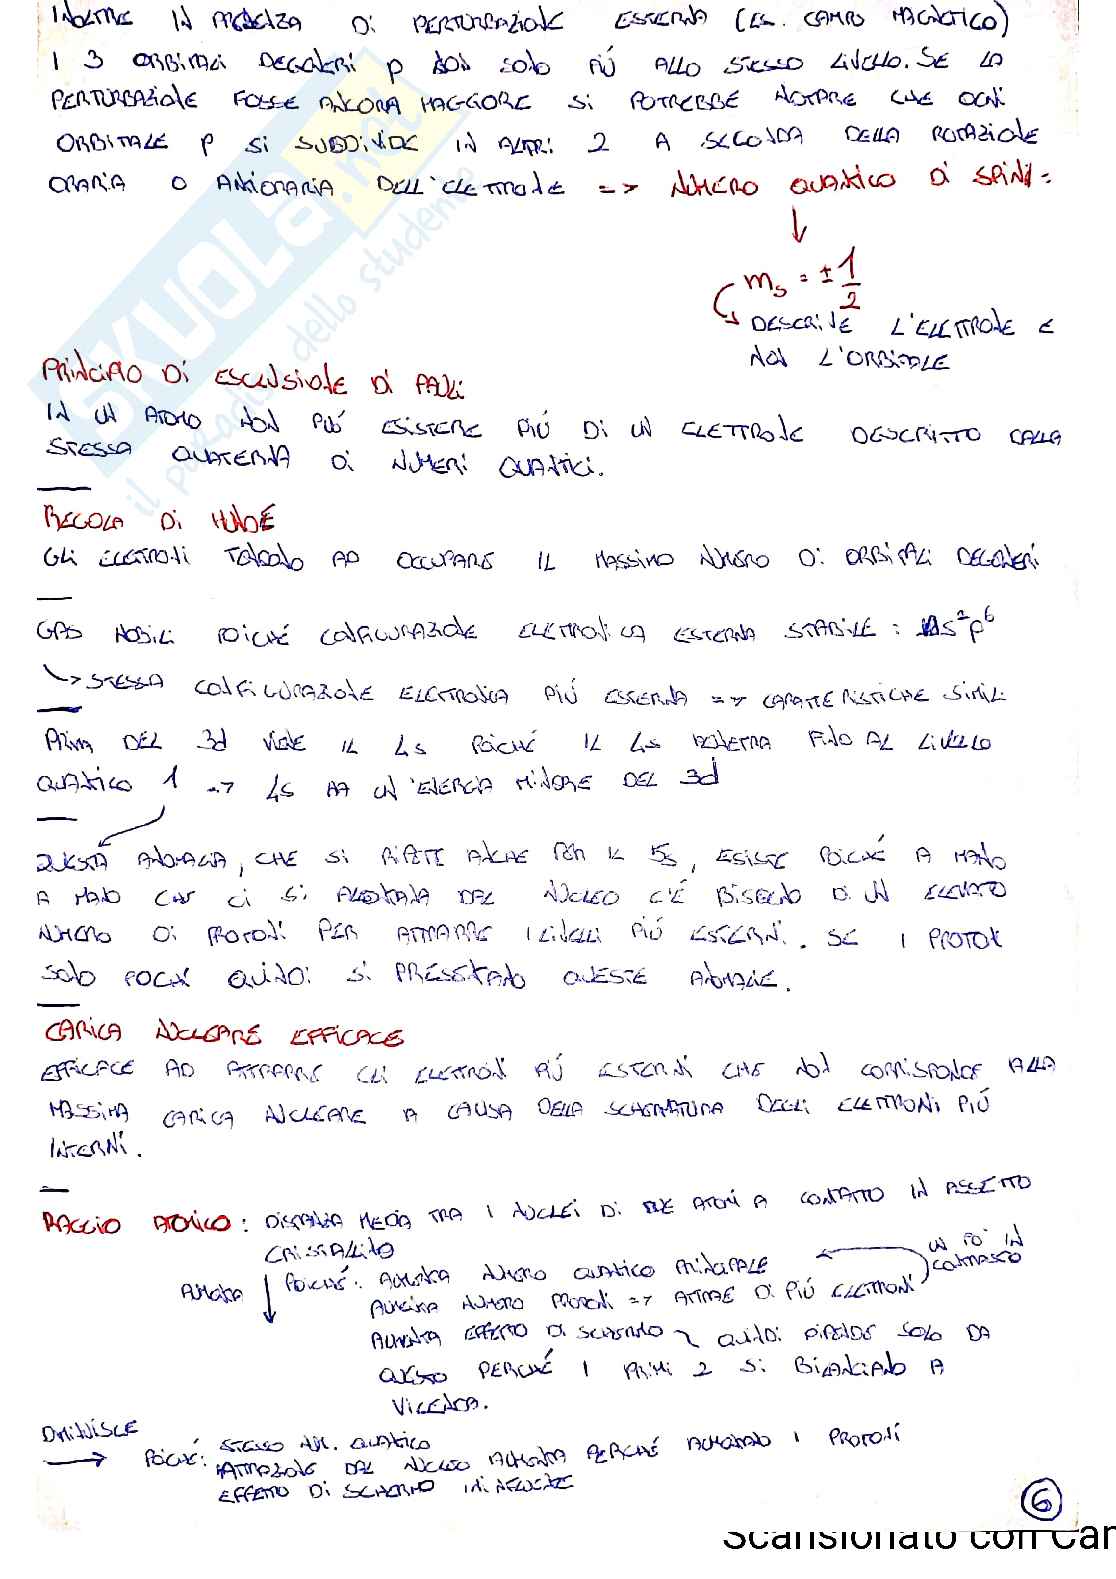 INOLTRE IN PRESENZA DI PERTURBAZIONE ESTERNA (ES. CAMPO MAGNETICO)
I 3 ORBITALI DEGENERI p NON SONO PIÚ ALLO STESSO LIVELLO. SE LA
PERTURBAZIONE FOSSE ANCORA MAGGIORE SI POTREBBE NOTARE CHE OGNI
ORBITALE p SI SUDDIVIDE IN ALTRI 2 A SECONDA DELLA ROTAZIONE
ORARIA O ANTIORARIA DELL'ELETTRONE => NUMERO QUANTICO DI SPIN =
ms = ± 1/2
DESCRIVE L'ELETTRONE E
NON L'ORBITALE
PRINCIPIO DI ESCLUSIONE DI PAULI
IN UN ATOMO NON PUÓ ESISTERE PIÚ DI UN ELETTRONE DESCRITTO DALLA
STESSA QUATERNA DI NUMERI QUANTICI.
REGOLA DI HUND
GLI ELETTRONI TENDONO AD OCCUPARE IL MASSIMO NUMERO DI ORBITALI DEGENERI
GAS NOBILI POICHÉ CONFIGURAZIONE ELETTRONICA ESTERNA STABILE : s²p⁶
↳ STESSA CONFIGURAZIONE ELETTRONICA PIÚ ESTERNA => CARATTERISTICHE SIMILI
PRIMA DEL 3d VIENE IL 4s POICHÉ IL 4s PENETRA FINO AL LIVELLO
QUANTICO 1 -> 4s HA UN'ENERGIA MINORE DEL 3d
QUESTA ANOMALIA, CHE SI RIPETE ANCHE PER IL 5s, ESISTE POICHÉ A MANO
A MANO CHE CI SI ALLONTANA DAL NUCLEO C'É BISOGNO DI UN ELEVATO
NUMERO DI PROTONI PER ATTRARRE I LIVELLI PIÚ ESTERNI. SE I PROTONI
SONO POCHI QUINDI SI PRESENTANO QUESTE ANOMALIE.
CARICA NUCLEARE EFFICACE
EFFICACE AD ATTRARRE GLI ELETTRONI PIÚ ESTERNI CHE NON CORRISPONDE ALLA
MASSIMA CARICA NUCLEARE A CAUSA DELLA SCHERMATURA DEGLI ELETTRONI PIÚ
INTERNI.
RAGGIO ATOMICO : DISTANZA MEDIA TRA I NUCLEI DI DUE ATOMI A CONTATTO IN ASSETTO
CRISTALLINO
AUMENTA ↓ POICHÉ : AUMENTA NUMERO QUANTICO PRINCIPALE
UN PO' IN
CONTRASTO
AUMENTA NUMERO PROTONI => ATTRAE DI PIÚ ELETTRONI
AUMENTA EFFETTO DI SCHERMO QUINDI DIPENDE SOLO DA
QUESTO PERCHÉ I PRIMI 2 SI BILANCIANO A
VICENDA.
DIMINUISCE
→ POICHÉ : STESSO NUM. QUANTICO
ATTRAZIONE DAL NUCLEO AUMENTA PERCHÉ AUMENTANO I PROTONI
EFFETTO DI SCHERMO ININFLUENTE
6
SKUOLA.net
il paradiso dello studente
Scansionato con Cam